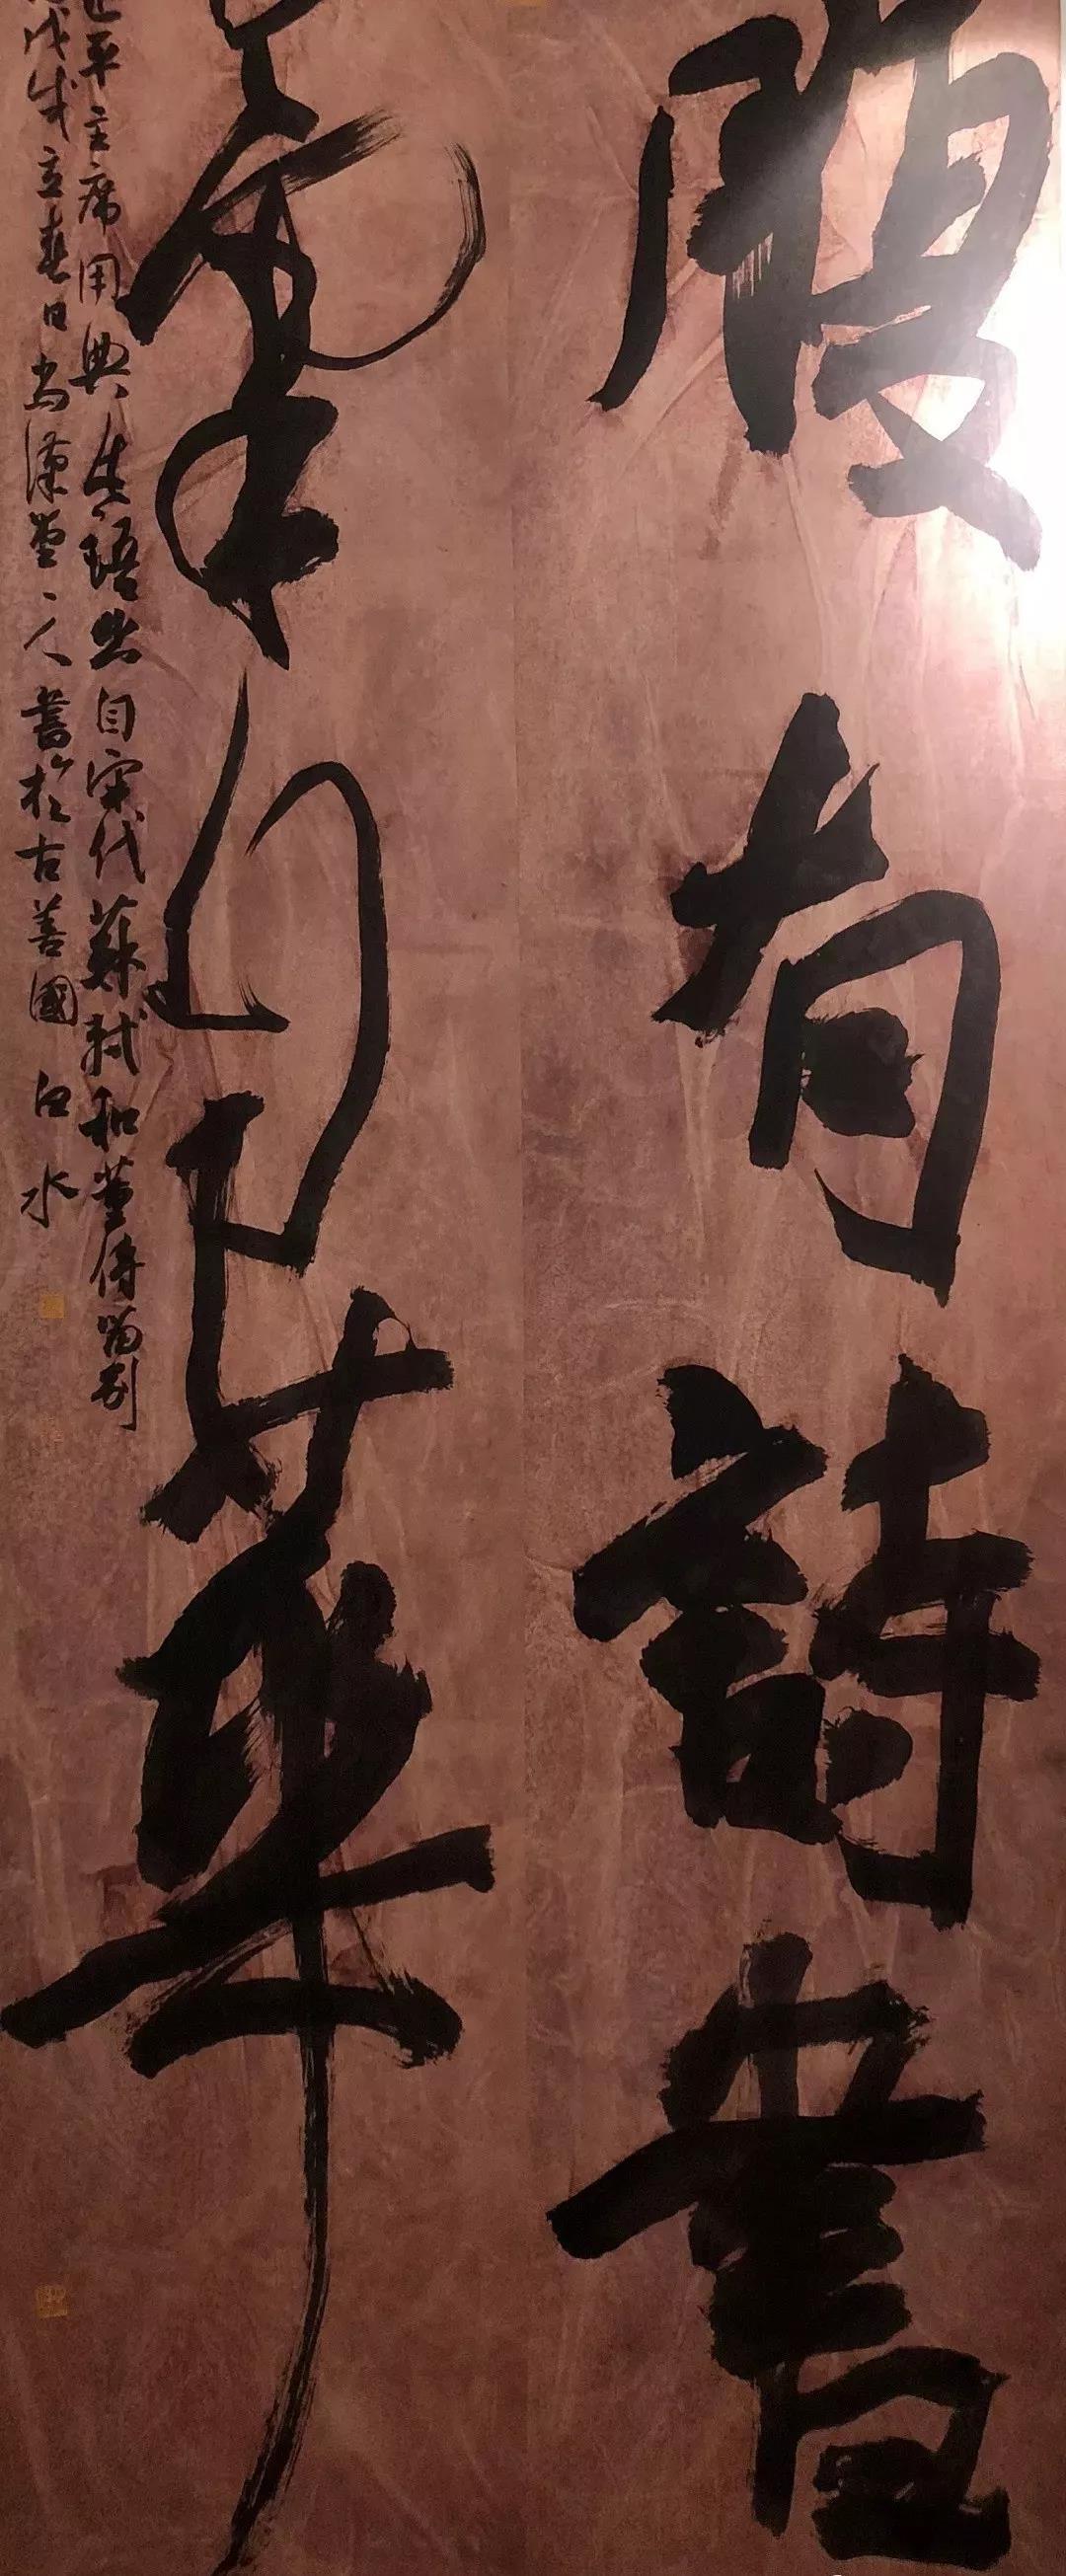 腹有詩書
氣自華
平主席用典 出自宋代蘇軾和董傳留別
戊戌立春日尚漢堂人書於古善國 白水